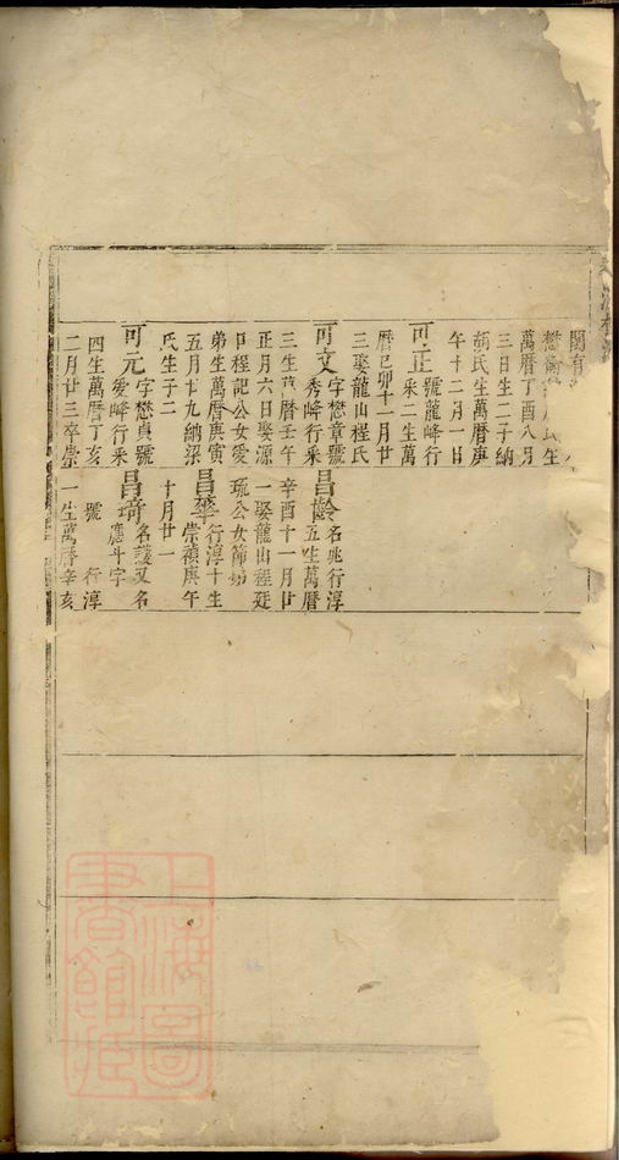 閏有
懋
萬曆丁酉八月
三日生二子納
胡氏生萬曆庚
午十二月一日
可正 號龍峰行
采二生萬
曆已卯十一月廿
三娶龍山程氏
可文 字懋章號
秀峰行采
三生萬曆壬午
正月六日娶源
口程記公女愛
弟生萬曆庚寅
五月廿九納梁
氏生子二
可元 字懋貞號
愛峰行采
四生萬曆丁亥
二月廿三卒崇
昌齡 名兆行淳
五生萬曆
辛酉十一月廿
一娶龍山程廷
珫公女節娟
昌華 行淳十生
崇禎庚午
十月廿一
昌琦 名護又名
應斗字
號 行淳
一生萬曆辛亥
上海圖書館藏